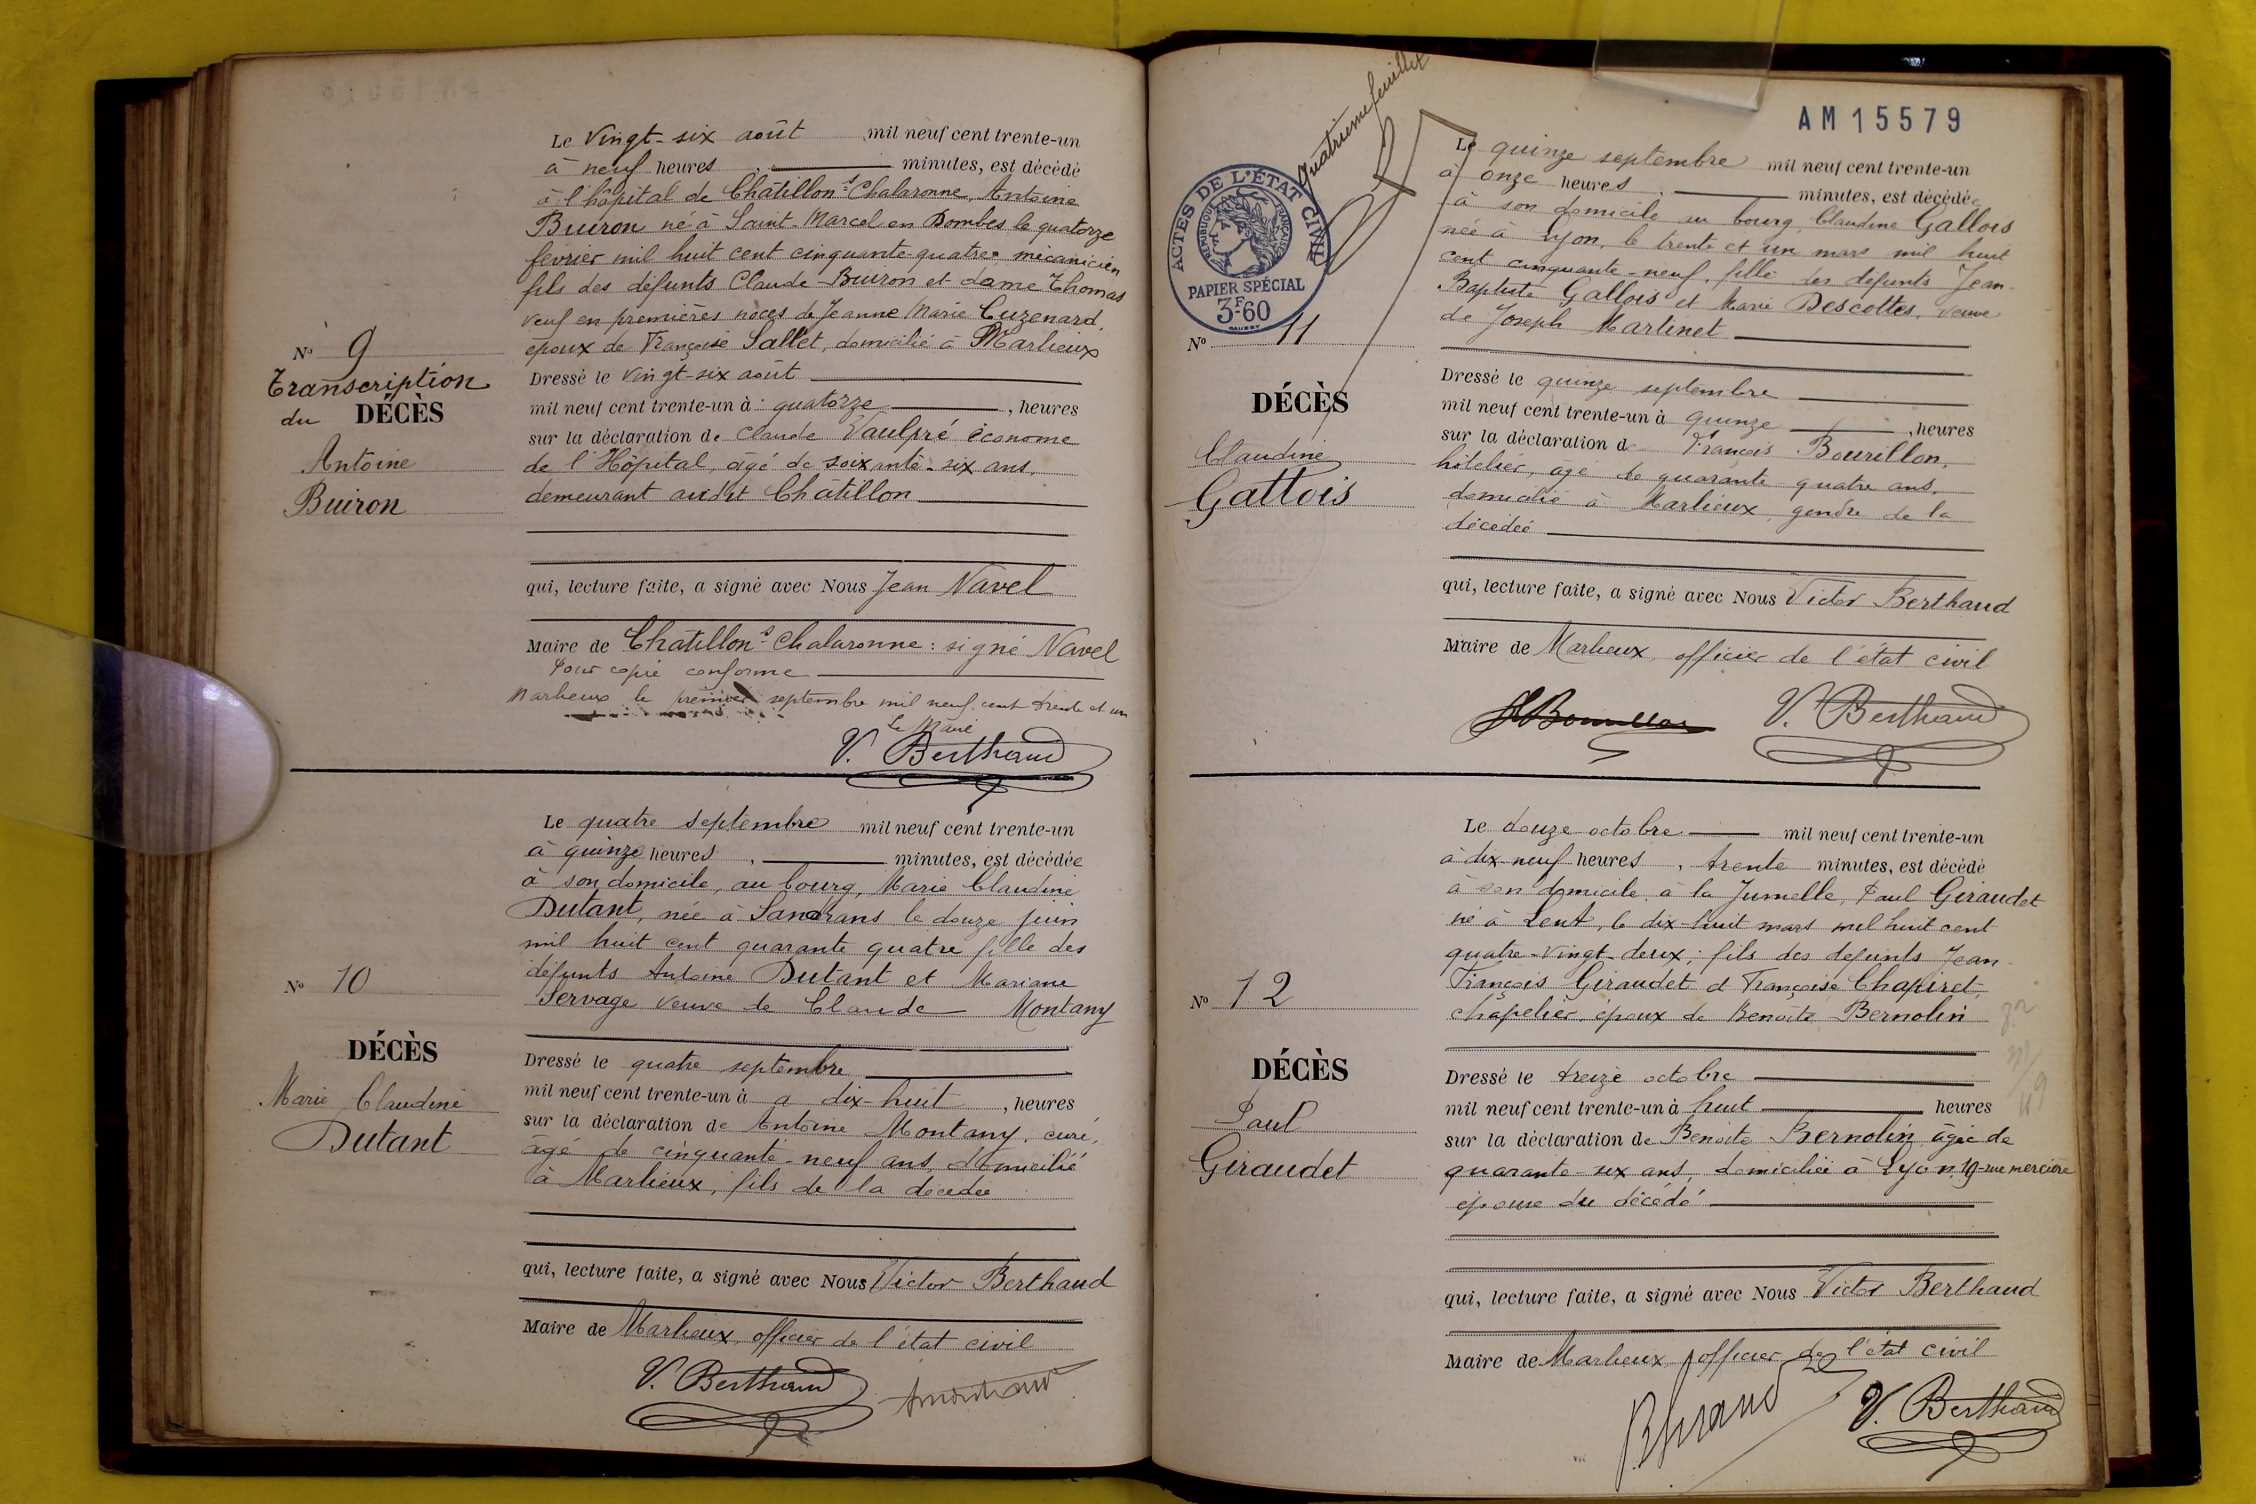 Le vingt-six août mil neuf cent trente-un
à neuf heures, minutes, est décédé
à l'hôpital de Châtillon-s-Chalaronne, Antoine
Buiron né à Saint-Marcel en Dombes le quatorze
février mil huit cent cinquante quatre, mécanicien
fils des défunts Claude Buiron et dame Thomas
veuf en premières noces de Jeanne Marie Cuzenard,
époux de Françoise Sallet, domicilié à Marlieux
No 9
Transcription
du DÉCÈS
Antoine
Buiron
Dressé le vingt-six août
mil neuf cent trente-un à quatorze, heures
sur la déclaration de Claude Vaulpré économe
de l'Hôpital, âgé de soixante-six ans,
demeurant audit Châtillon
qui, lecture faite, a signé avec Nous Jean Navel
Maire de Châtillon-s-Chalaronne : signé Navel
Pour copie conforme
Marlieux le premier septembre mil neuf cent trente et un
Le Maire
V. Berthaud
Le quatre septembre mil neuf cent trente-un
à quinze heures, minutes, est décédée
à son domicile, au bourg, Marie Claudine
Dutant, née à Sandrans le douze juin
mil huit cent quarante quatre fille des
défunts Antoine Dutant et Mariane
Servage veuve de Claude Montany
No 10
DÉCÈS
Marie Claudine
Dutant
Dressé le quatre septembre
mil neuf cent trente-un à a dix-huit, heures
sur la déclaration de Antoine Montany, curé,
âgé de cinquante-neuf ans, domicilié
à Marlieux, fils de la décédée
qui, lecture faite, a signé avec Nous Victor Berthaud
Maire de Marlieux, officier de l'état civil
V. Berthaud
Quatrième feuillet
AM15579
ACTES DE L'ÉTAT CIVIL
RÉPUBLIQUE FRANÇAISE
PAPIER SPÉCIAL
3F60
Le quinze septembre mil neuf cent trente-un
à onze heures, minutes, est décédée
à son domicile au bourg, Claudine Gallois
née à Lyon, le trente et un mars mil huit
cent cinquante-neuf, fille des défunts Jean-
Baptiste Gallois et Marie Descottes, veuve
de Joseph Martinet
No 11
DÉCÈS
Claudine
Gallois
Dressé le quinze septembre
mil neuf cent trente-un à quinze, heures
sur la déclaration de François Bourillon,
hôtelier, âgé de quarante quatre ans,
domicilié à Marlieux, gendre de la
décédée
qui, lecture faite, a signé avec Nous Victor Berthaud
Maire de Marlieux, officier de l'état civil
V. Berthaud
Le douze octobre mil neuf cent trente-un
à dix-neuf heures, trente minutes, est décédé
à son domicile à la Jumelle, Paul Giraudet
né à Lent, le dix-huit mars mil huit cent
quatre-vingt-deux; fils des défunts Jean-
François Giraudet et Françoise Chapiret,
chapelier, époux de Benoîte Bernolin
No 12
DÉCÈS
Paul
Giraudet
Dressé le treize octobre
mil neuf cent trente-un à huit heures
sur la déclaration de Benoîte Bernolin âgée de
quarante-six ans, domiciliée à Lyon, 19 rue mercière
épouse du décédé
qui, lecture faite, a signé avec Nous Victor Berthaud
Maire de Marlieux, officier de l'état civil
V. Berthaud